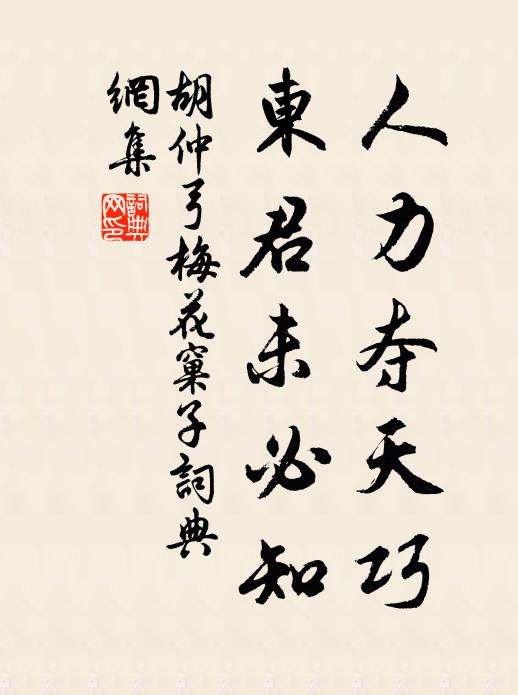 人力夺天巧
東君未必知
胡仲弓梅花窠子詞典
網集
詞典
网印